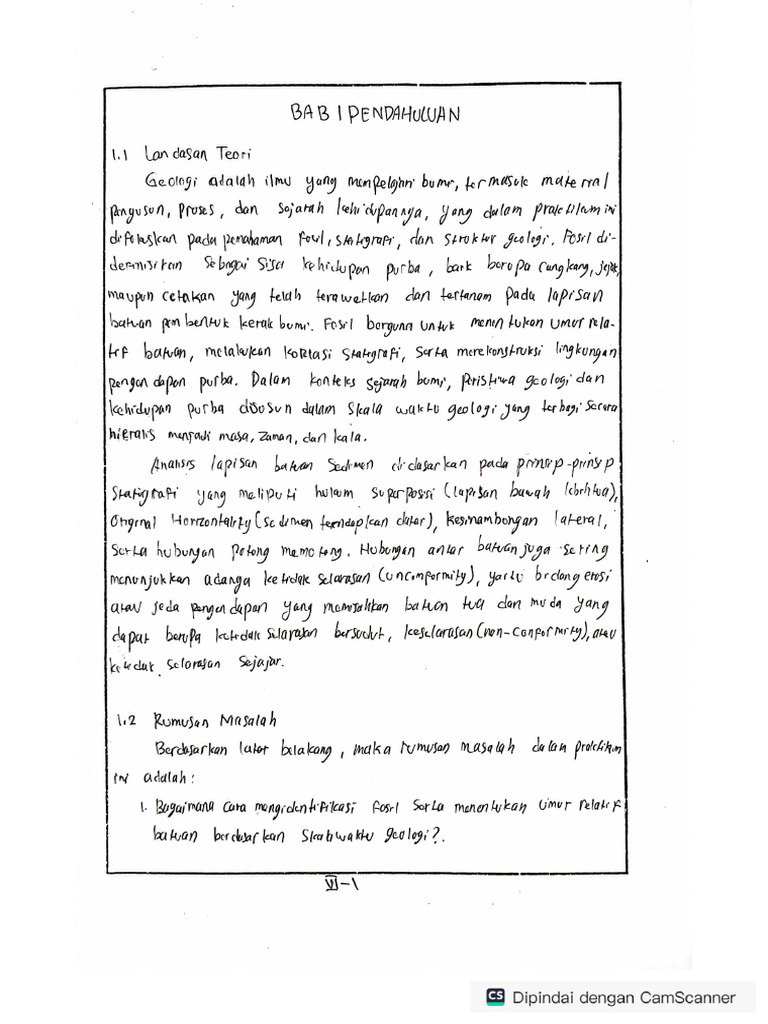 BAB I PENDAHULUAN
1.1 Landasan Teori
Geologi adalah ilmu yang mempelajari bumi, termasuk material
penyusun, proses, dan sejarah kehidupannya, yang dalam praktikum ini
difokuskan pada pemahaman fosil, statigrafi, dan struktur geologi. Fosil di-
dermisikan sebagai sisa kehidupan purba, baik berupa cangkang, jejak,
maupun cetakan yang telah terawetkan dan tertanam pada lapisan
batuan pembentuk kerak bumi. Fosil berguna untuk menentukan umur rela-
tif batuan, melakukan korelasi statigrafi, serta merekonstruksi lingkungan
pengendapan purba. Dalam konteks sejarah bumi, peristiwa geologi dan
kehidupan purba disusun dalam skala waktu geologi yang terbagi secara
hierakis menjadi masa, zaman, dan kala.
Analisis lapisan batuan sedimen didasarkan pada prinsip-prinsip
statigrafi yang meliputi hukum superposisi (lapisan bawah lebih tua),
Original Horizontality (sedimen terendapkan datar), kesinambongan lateral,
serta hubungan potong memotong. Hubungan antar batuan juga sering
menunjukkan adanga ketidak selarasan (unconformity), yaitu bidang erosi
atau jeda pengendapan yang memisahkan batuan tua dan muda yang
dapat berupa ketidak selarasan bersudut, keselarasan (non-conformity), atau
ketidak selarasan sejajar.
1.2 Rumusan Masalah
Berdasarkan latar belakang, maka rumusan masalah dalam praktikum
ini adalah:
1. Bagaimana cara mengidentifikasi fosil serta menentukan umur relatif
batuan berdasarkan skala waktu geologi?.
VI-1
CS Dipindai dengan CamScanner